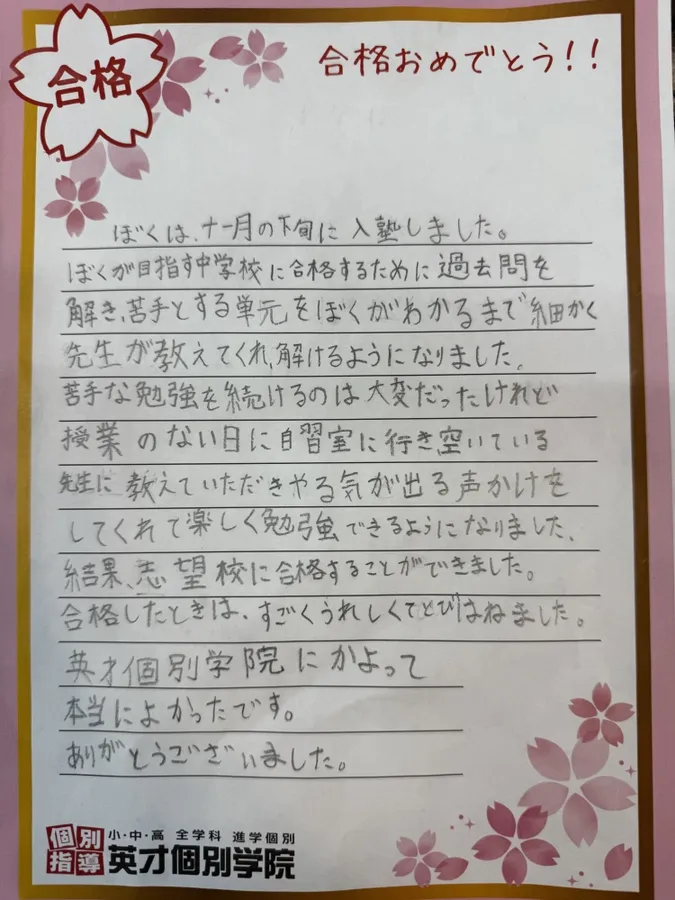 合格
合格おめでとう!!
ぼくは、十一月の下旬に入塾しました。
ぼくが目指す中学校に合格するために過去問を
解き、苦手とする単元をぼくがわかるまで細かく
先生が教えてくれ、解けるようになりました。
苦手な勉強を続けるのは大変だったけれど
授業のない日に自習室に行き、空いている
先生に教えていただきやる気が出る声かけを
してくれて楽しく勉強できるようになりました、
結果、志望校に合格することができました。
合格したときは、すごくうれしくてとびはねました。
英才個別学院にかよって
本当によかったです。
ありがとうございました。
個別指導
小・中・高 全学科 進学個別
英才個別学院